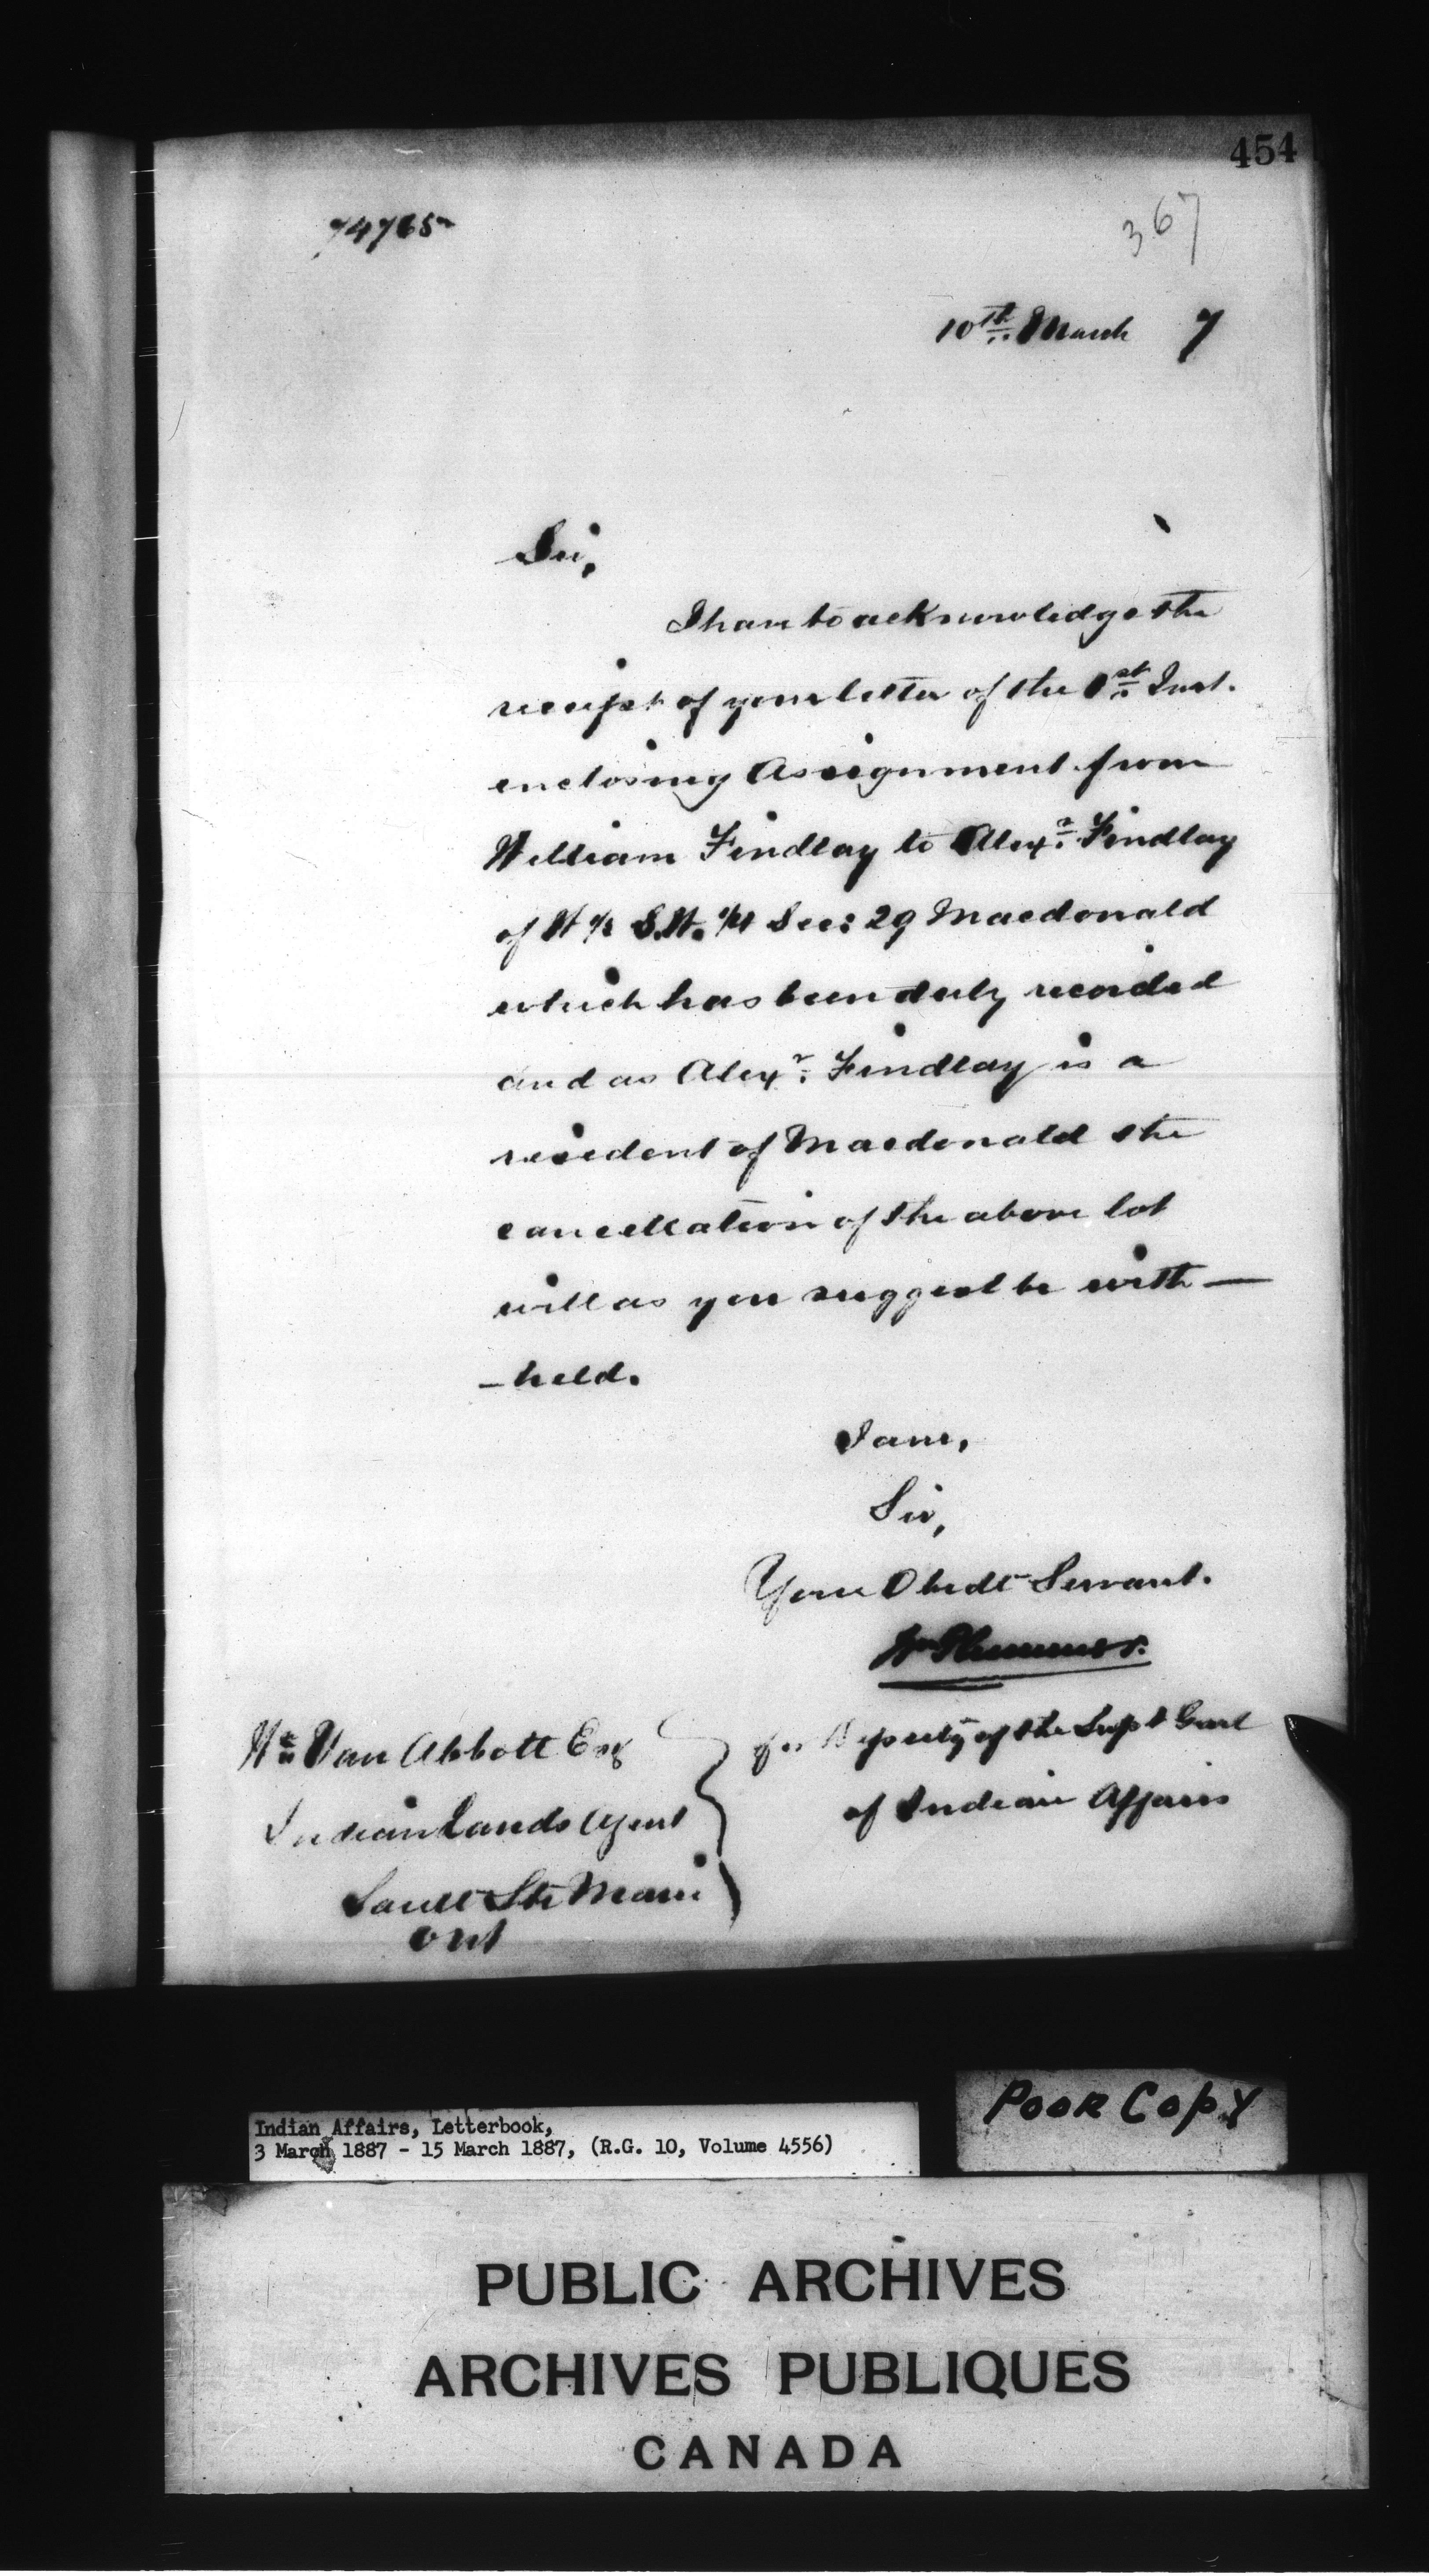 454
74765
367
10th March 7
Sir,
I have to acknowledge the
receipt of your letter of the 1st Inst.
enclosing Assignment from
William Findlay to Alexr. Findlay
of W 1/2 S.W. 1/4 Sec: 29 Macdonald
which has been duly recorded
and as Alexr. Findlay is a
resident of Macdonald the
cancellation of the above lot
will as you suggest be with—
—held.
I am,
Sir,
Your Obedt Servant.
Wm Plummer.
for Deputy of the Supt Genl
of Indian Affairs
Wm Van Abbott Esq
Indian Lands Agent
Sault Ste Marie
Ont
POOR COPY
Indian Affairs, Letterbook,
3 March 1887 - 15 March 1887, (R.G. 10, Volume 4556)
PUBLIC ARCHIVES
ARCHIVES PUBLIQUES
CANADA